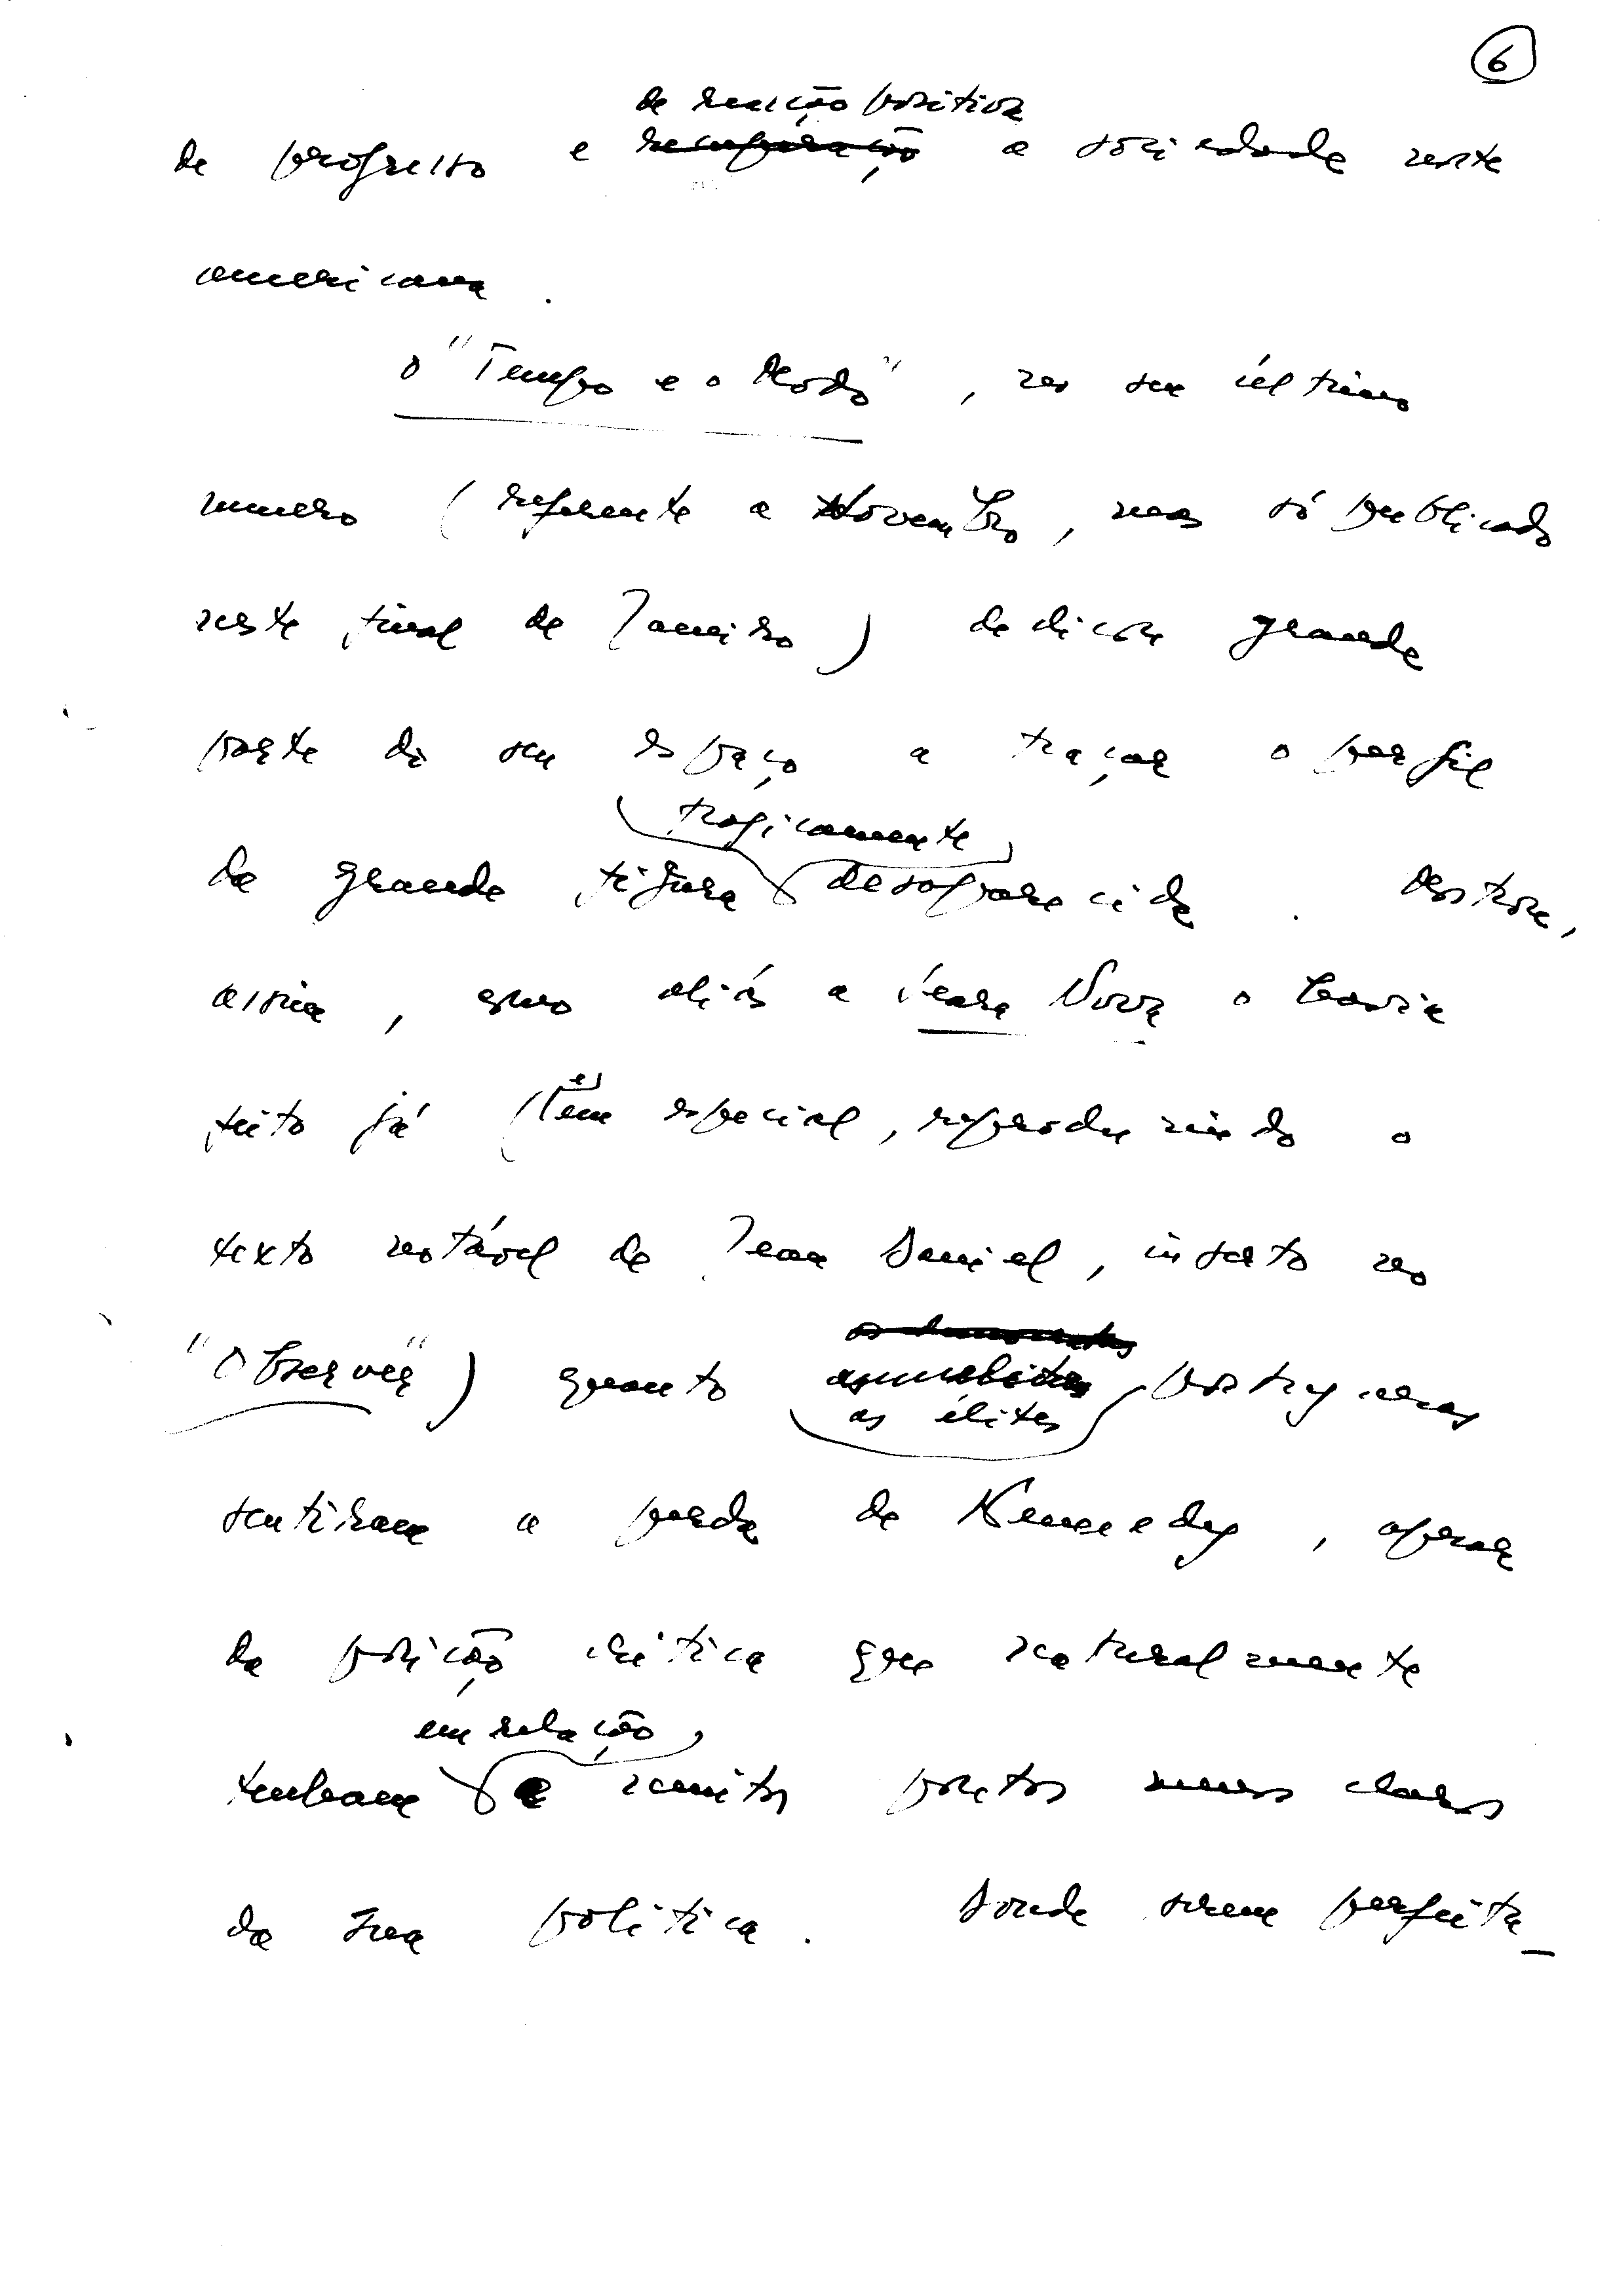 6
de reacção positiva
de progresso e recuperação a sociedade norte
americana.
O "Tempo e o Modo", no seu último
numero (referente a Novembro, mas só publicado
neste final de Janeiro) dedicou grande
parte do seu espaço a traçar o perfil
tragicamente
da grande figura desaparecida. Mostrou,
assim, como aliás a Seara Nova o havia
feito já (em especial, reproduzindo o
texto notável de Jean Daniel, inserto no
"Observer") quanto
as élites portuguesas
sentiram a perda de Kennedy, apesar
da posição crítica que naturalmente
em relação
tenham a muitos pontos menos claros
da sua política. Donde serem perfeita-